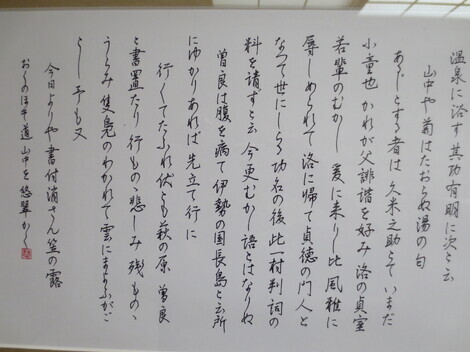 温泉に浴す其功有明に次と云
山中や菊はたおらぬ湯の匂
あるじとする者は久米之助とていまだ
小童也かれが父誹諧を好み洛の貞室
若輩のむかし爰に来りし比風雅に
辱しめられて洛に帰て貞徳の門人と
なつて世にしらる功名の後此一村判詞の
料を請ずと云今更むかし語とはなりぬ
曽良は腹を病て伊勢の国長島と云所
にゆかりあれば先立て行に
行くてたふれ伏とも萩の原 曽良
と書置たり行ものゝ悲しみ残ものゝ
うらみ隻鳧のわかれて雲にまよふがご
とし予も又
今日よりや書付消さん笠の露
おくのほそ道山中を悠翠かく